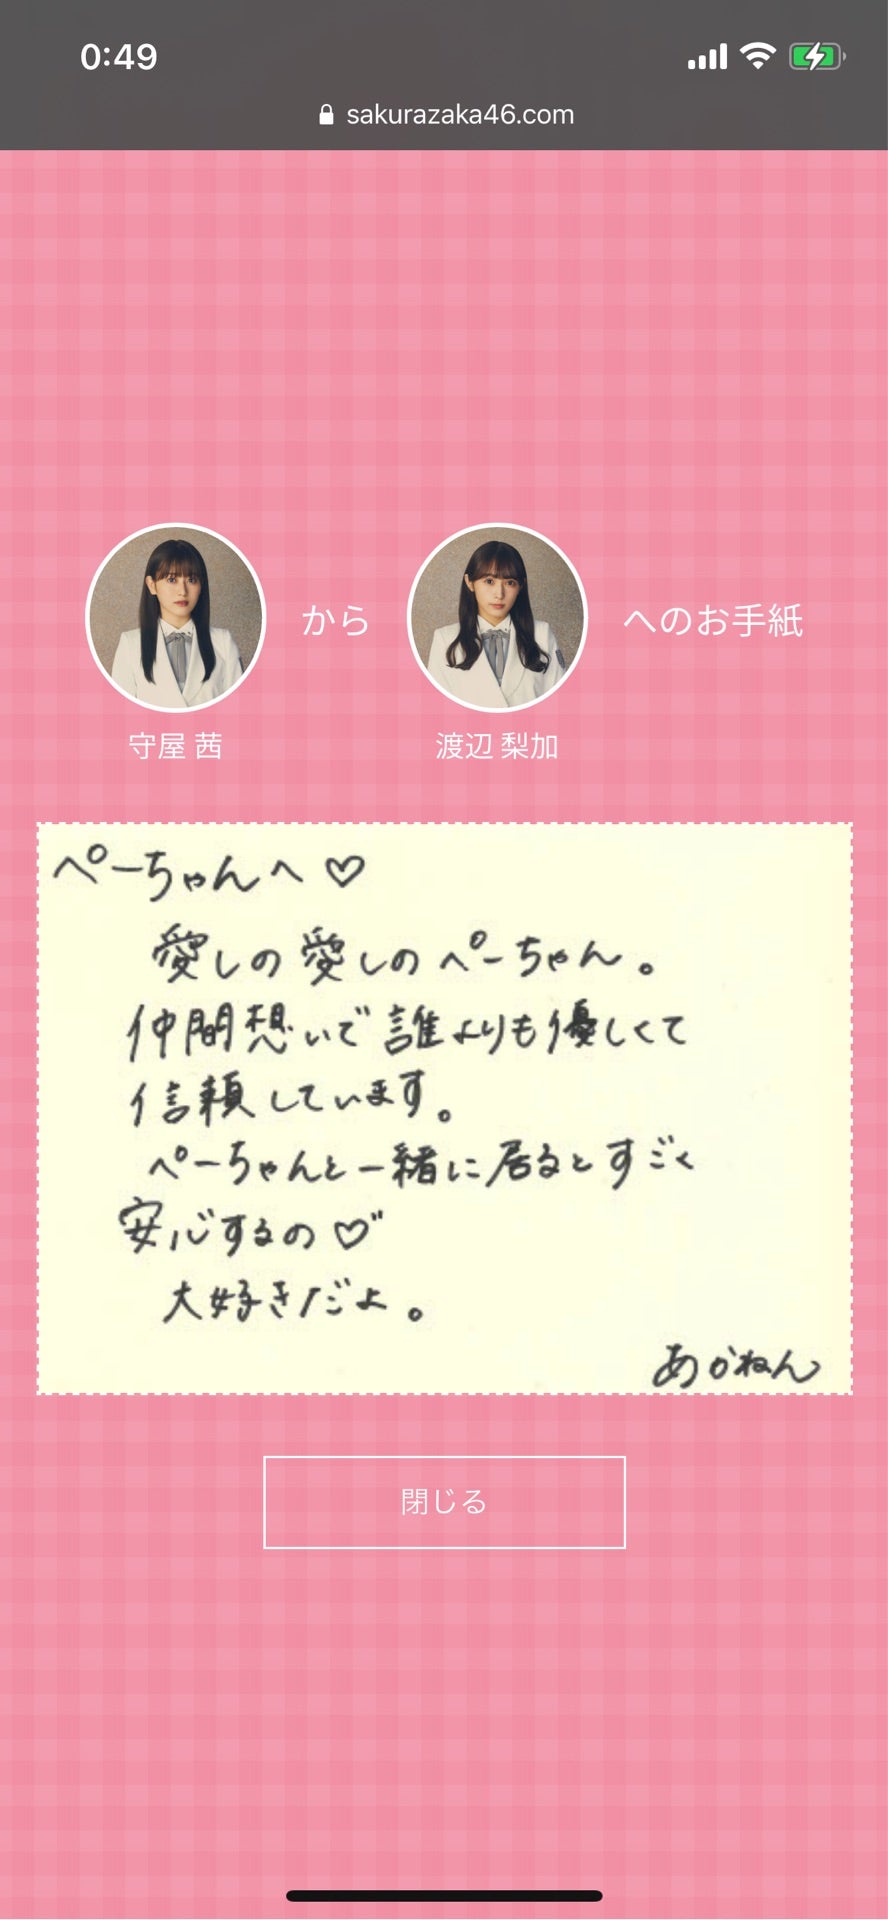 0:49
sakurazaka46.com
から
へのお手紙
守屋 茜
渡辺 梨加
ぺーちゃんへ♡
愛しの愛しのぺーちゃん。
仲間想いで誰よりも優しくて
信頼しています。
ぺーちゃんと一緒に居るとすごく
安心するの♡
大好きだよ。
あかねん
閉じる